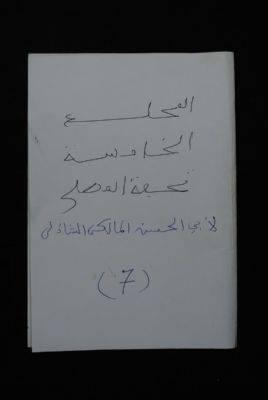 القطع
الخامسة
تحفة المصلي
لأبي الحسن المالكي الشاذلي
(7)